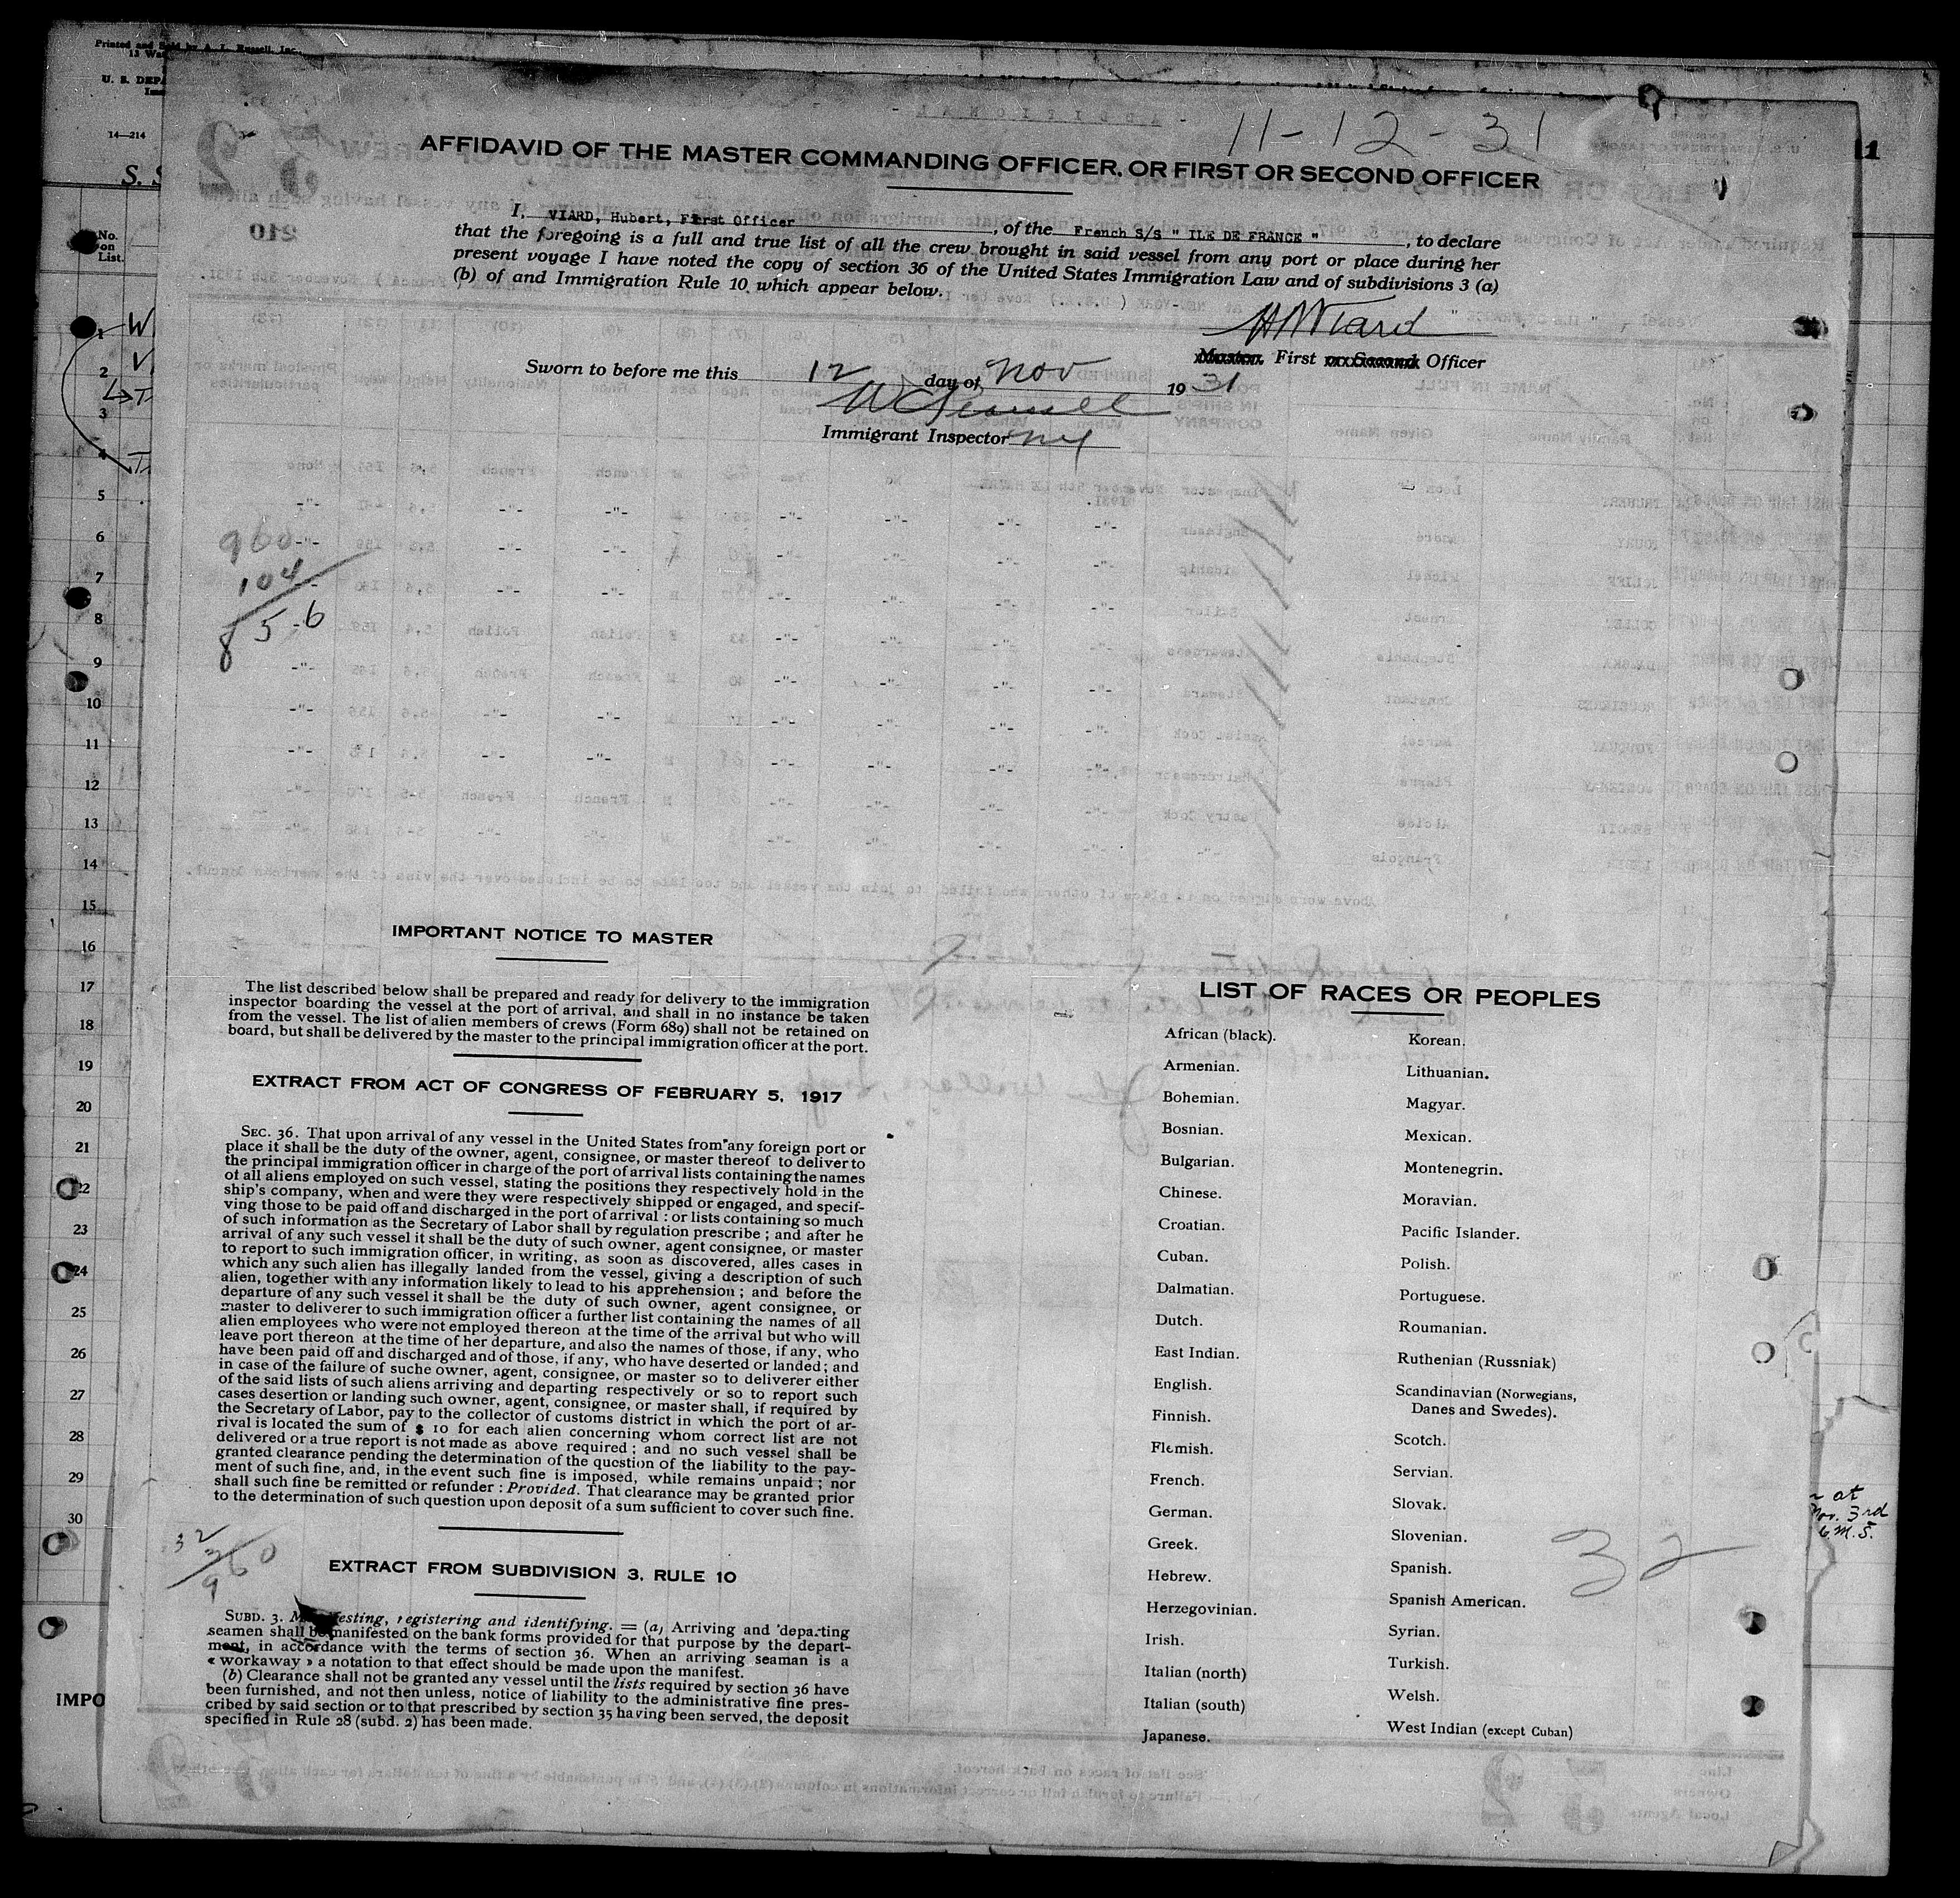 Printed and Sold by A. L. Russell, Inc.,
14—214
11-12-31
11
AFFIDAVID OF THE MASTER COMMANDING OFFICER, OR FIRST OR SECOND OFFICER
I, VIARD, Hubert, First Officer, of the French S/S " ILE DE FRANCE ", to declare
that the foregoing is a full and true list of all the crew brought in said vessel from any port or place during her
present voyage I have noted the copy of section 36 of the United States Immigration Law and of subdivisions 3 (a)
(b) of and Immigration Rule 10 which appear below.
No.
on
List.
HViard
Master First or Second Officer
Sworn to before me this 12 day of Nov 1931
Immigrant Inspector NY
1
2
3
4
5
6
7
8
9
10
11
12
13
14
15
16
17
18
19
20
21
22
23
24
25
26
27
28
29
30
960
104
856
IMPORTANT NOTICE TO MASTER
The list described below shall be prepared and ready for delivery to the immigration
inspector boarding the vessel at the port of arrival, and shall in no instance be taken
from the vessel. The list of alien members of crews (Form 689) shall not be retained on
board, but shall be delivered by the master to the principal immigration officer at the port.
EXTRACT FROM ACT OF CONGRESS OF FEBRUARY 5, 1917
SEC. 36. That upon arrival of any vessel in the United States from any foreign port or
place it shall be the duty of the owner, agent, consignee, or master thereof to deliver to
the principal immigration officer in charge of the port of arrival lists containing the names
of all aliens employed on such vessel, stating the positions they respectively hold in the
ship's company, when and were they were respectively shipped or engaged, and specif-
ving those to be paid off and discharged in the port of arrival : or lists containing so much
of such information as the Secretary of Labor shall by regulation prescribe ; and after he
arrival of any such vessel it shall be the duty of such owner, agent consignee, or master
to report to such immigration officer, in writing, as soon as discovered, alles cases in
which any such alien has illegally landed from the vessel, giving a description of such
alien, together with any information likely to lead to his apprehension ; and before the
departure of any such vessel it shall be the duty of such owner, agent consignee, or
master to deliverer to such immigration officer a further list containing the names of all
alien employees who were not employed thereon at the time of the arrival but who will
leave port thereon at the time of her departure, and also the names of those, if any, who
have been paid off and discharged and of those, if any, who have deserted or landed ; and
in case of the failure of suche owner, agent, consignee, or master so to deliverer either
of the said lists of such aliens arriving and departing respectively or so to report such
cases desertion or landing such owner, agent, consignee, or master shall, if required by
the Secretary of Labor, pay to the collector of customs district in which the port of ar-
rival is located the sum of $ 10 for each alien concerning whom correct list are not
delivered or a true report is not made as above required ; and no such vessel shall be
granted clearance pending the determination of the question of the liability to the pay-
ment of such fine, and, in the event such fine is imposed, while remains unpaid ; nor
shall such fine be remitted or refunder : Provided. That clearance may be granted prior
to the determination of such question upon deposit of a sum sufficient to cover such fine.
EXTRACT FROM SUBDIVISION 3, RULE 10
SUBD. 3. Manifesting, registering and identifying. = (a) Arriving and departing
seamen shall be manifested on the bank forms provided for that purpose by the depart-
ment, in accordance with the terms of section 36. When an arriving seaman is a
« workaway » a notation to that effect should be made upon the manifest.
(b) Clearance shall not be granted any vessel until the lists required by section 36 have
been furnished, and not then unless, notice of liability to the administrative fine pres-
cribed by said section or to that prescribed by section 35 having been served, the deposit
specified in Rule 28 (subd. 2) has been made.
IMPO
LIST OF RACES OR PEOPLES
African (black).
Armenian.
Bohemian.
Bosnian.
Bulgarian.
Chinese.
Croatian.
Cuban.
Dalmatian.
Dutch.
East Indian.
English.
Finnish.
Flemish.
French.
German.
Greek.
Hebrew.
Herzegovinian.
Irish.
Italian (north)
Italian (south)
Japanese.
Korean.
Lithuanian.
Magyar.
Mexican.
Montenegrin.
Moravian.
Pacific Islander.
Polish.
Portuguese.
Roumanian.
Ruthenian (Russniak)
Scandinavian (Norwegians,
Danes and Swedes).
Scotch.
Servian.
Slovak.
Slovenian.
Spanish.
Spanish American.
Syrian.
Turkish.
Welsh.
West Indian (except Cuban)
32